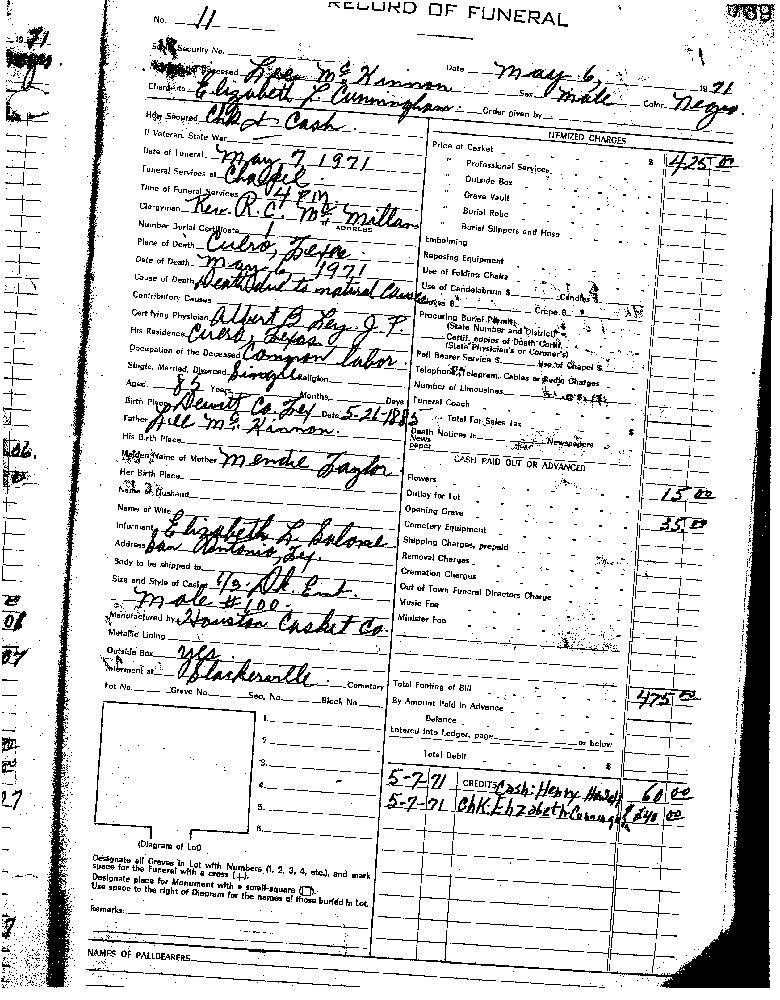 RECORD OF FUNERAL
No. 11
Security No.
Deceased Lee Mc Kinnon Date May 6, 1971
Charge to Elizabeth L Cunningham. Order given by Sex Male Color Negro.
How Secured Chk & Cash.
If Veteran, State War
Date of Funeral May 7 1971
Funeral Services at Chapel
Time of Funeral Services 4 PM
Clergyman Rev. R. C. Mc Millan
ADDRESS
Number Burial Certificate 1
Place of Death Cuero, Texas
Date of Death May 6, 1971
Cause of Death Death due to natural Causes
Contributory Causes
Certifying Physician Albert B Ley J. P.
His Residence Cuero, Texas
Occupation of the Deceased Common labor.
Single, Married, Divorced Single Religion
Aged 85 Years Months Days
Birth Place Dewitt Co. Tex Date 5-21-1885
Father Will Mc Kinnon.
His Birth Place
Maiden Name of Mother Mendie Taylor
Her Birth Place
Name of Husband
Name of Wife
Informant Elizabeth L.
Address San Antonio, Tex.
Body to be shipped to
Size and Style of Casket 6/3 Dk. Emb.
Mole #100.
Manufactured by Houston Casket Co.
Metallic Lining
Outside Box yes
Interment at Cemetery
Lot No. Grave No. Sec. No. Block No.
1.
2.
3.
4.
5.
6.
(Diagram of Lot)
Designate all Graves in Lot with Numbers (1, 2, 3, 4, etc.), and mark
space for the Funeral with a cross (+).
Designate place for Monument with a small square (□).
Use space to the right of Diagram for the names of those buried in Lot.
Remarks:
NAMES OF PALLBEARERS
ITEMIZED CHARGES
Price of Casket $ 425 00
" Professional Services
" Outside Box
" Grave Vault
" Burial Robe
" Burial Slippers and Hose
Embalming
Reposing Equipment
Use of Folding Chairs
Use of Candelabrum $ Candles $
Gloves $ Crepe $
Procuring Burial Permit
(State Number and District)
Certif. copies of Death Certif.
(State Physician's or Coroner's)
Pall Bearer Service $ Use of Chapel $
Telephone, Telegram, Cables or Radio Charges
Number of Limousines
Funeral Coach
Total For Sales Tax $
Death Notices in Newspapers
News
paper
CASH PAID OUT OR ADVANCED
Flowers
Outlay for Lot 15 00
Opening Grave
Cemetery Equipment 35 00
Shipping Charges, prepaid
Removal Charges
Cremation Charges
Out of Town Funeral Directors Charge
Music Fee
Minister Fee
Total Footing of Bill 475 00
By Amount Paid in Advance
Balance
Entered into Ledger, page or below
Total Debit $
5-7-71 CREDITS Cash: Henry 60 00
5-7-71 Chk. Elizabeth Cunningham $240 00